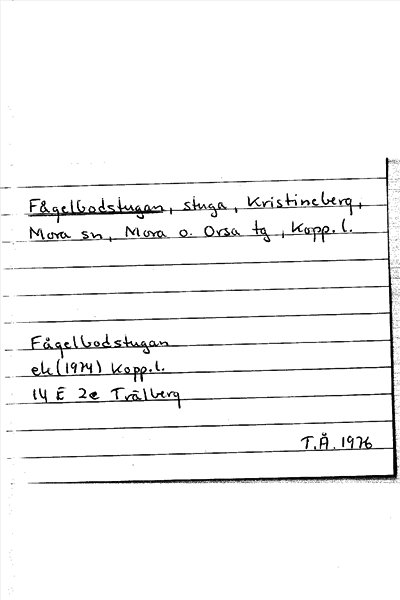 Fågelbodstugan, stuga, Kristineberg,
Mora sn, Mora o. Orsa tg, Kopp.l.
Fågelbodstugan
ek (1974) Kopp.l.
14 E 2e Trälberg
T.Å. 1976